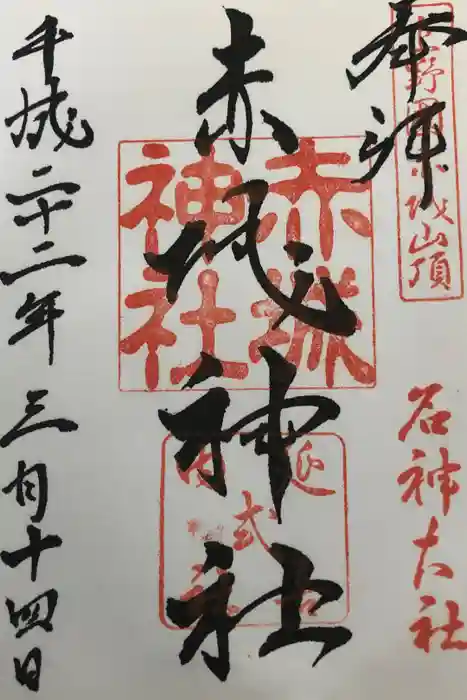 奉拝
上野國赤城山頂
名神大社
赤城神社
赤城
神社
平成二十二年三月十四日